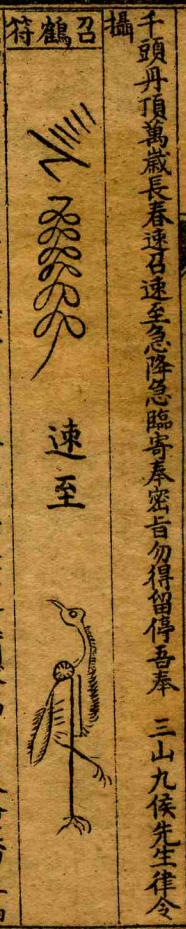 千頭丹頂萬歲長春速召速至急降急臨寄奉密旨勿得留停吾奉 三山九侯先生律令
攝
召鶴符
速至